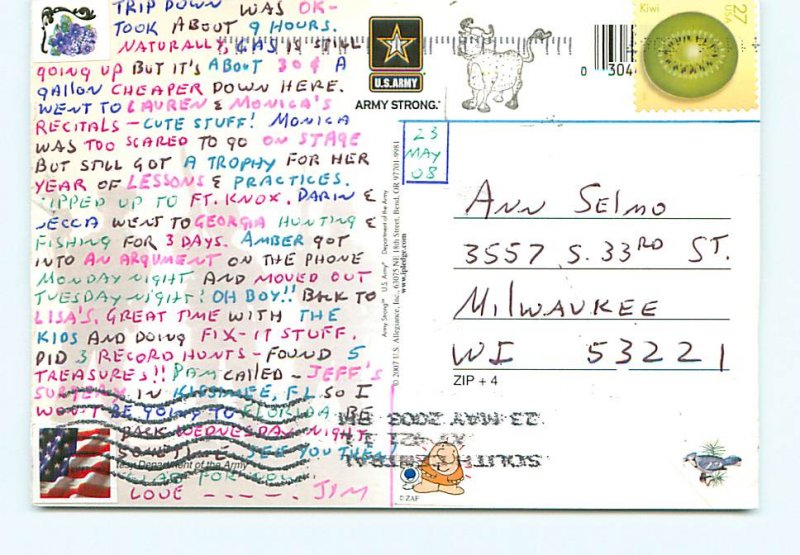 TRIP DOWN WAS OK-
TOOK ABOUT 9 HOURS.
NATURALLY, GAS IS STILL
GOING UP BUT IT'S ABOUT 30¢ A
GALLON CHEAPER DOWN HERE.
WENT TO LAUREN & MONICA'S
RECITALS – CUTE STUFF! MONICA
WAS TOO SCARED TO GO ON STAGE
BUT STILL GOT A TROPHY FOR HER
YEAR OF LESSONS & PRACTICES.
UP TO FT. KNOX. DARIN &
BECCA WENT TO GEORGIA HUNTING &
FISHING FOR 3 DAYS. AMBER GOT
INTO AN ARGUMENT ON THE PHONE
MONDAY NIGHT AND MOVED OUT
TUESDAY NIGHT! OH BOY!! BACK TO
LISA'S. GREAT TIME WITH THE
KIDS AND DOING FIX-IT STUFF.
DID 3 RECORD HUNTS – FOUND 5
TREASURES!! PAM CALLED – JEFF'S
SURGERY IN KISSIMEE, FL SO I
WON'T BE GOING TO FLORIDA. BE
BACK WEDNESDAY NIGHT
SOMETIME. SEE YOU THEN
FOR NOW.
LOVE ----. JIM
Department of the Army
U.S. ARMY
ARMY STRONG.™
Kiwi
27
USA
0 304
23
MAY
08
Army Strong™ U.S. Army® Department of the Army
© 2007 U.S. Allegiance, Inc., 63075 NE 18th Street, Bend, OR 97701-9981
www.ipledge.com
ANN SELMO
3557 S. 33RD ST.
MILWAUKEE
WI 53221
ZIP + 4
23 MAY 2008 PM
SOUTH CENTRAL
© ZAF